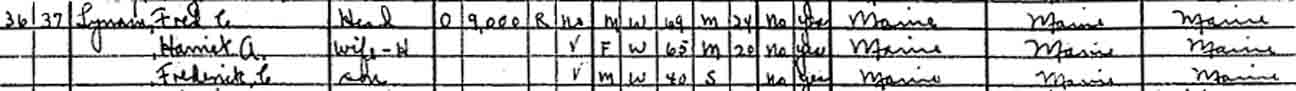 36 37 Lyman, Fred C Head O 9,000 R No M W 69 M 24 No yes Maine Maine Maine
Harriet A. wife-H √ F W 65 M 20 No yes Maine Maine Maine
Frederick C son √ M W 40 S No yes Maine Maine Maine